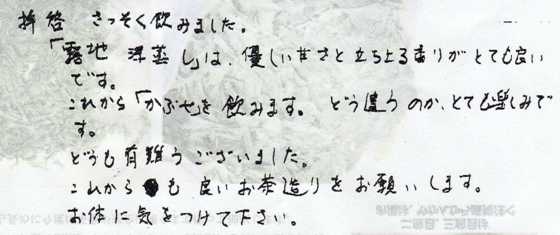 拝啓 さっそく飲みました。
「露地 深蒸し」は、優しい甘さと立ち上る香りがとても良い
です。
これから「かぶせ」を飲みます。 どう違うのか、とても楽しみで
す。
どうも有難うございました。
これからも良いお茶造りをお願いします。
お体に気をつけて下さい。